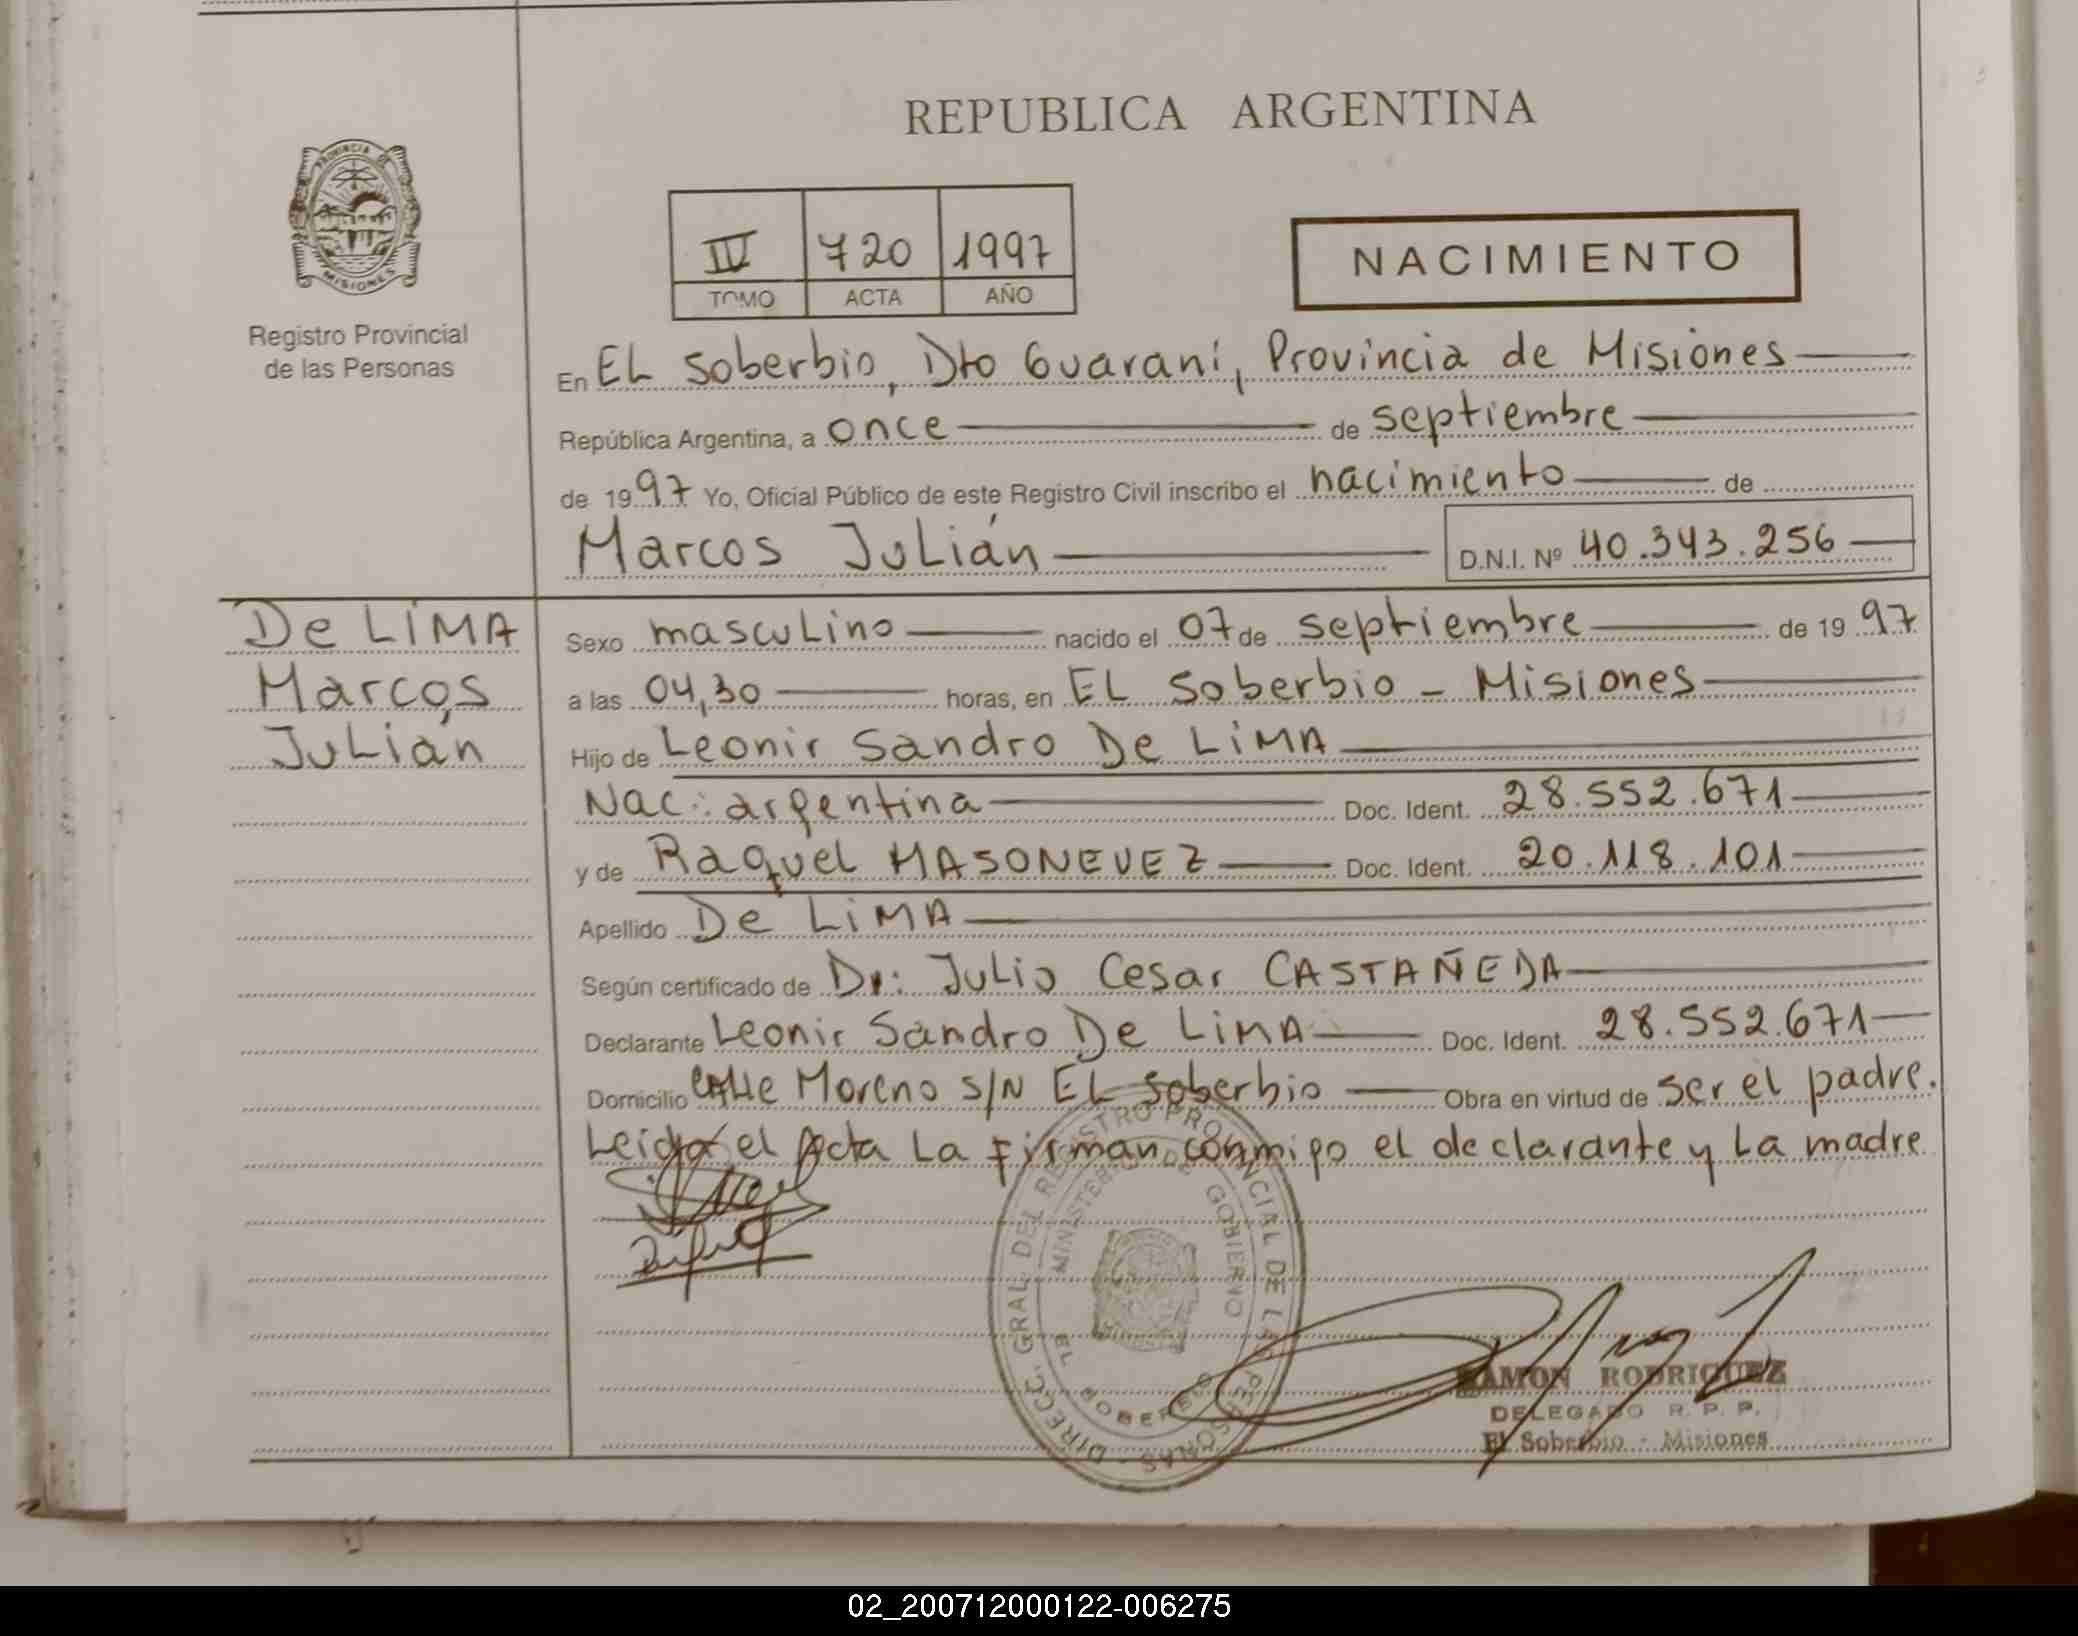 REPUBLICA ARGENTINA
PROVINCIA DE
MISIONES
Registro Provincial
de las Personas
IV 720 1997
TOMO ACTA AÑO
NACIMIENTO
En EL Soberbio, Dto Guaraní, Provincia de Misiones
República Argentina, a once de septiembre
de 1997 Yo, Oficial Público de este Registro Civil inscribo el nacimiento de
Marcos Julián D.N.I. Nº 40.343.256
De LIMA
Marcos
Julián
Sexo masculino nacido el 07 de septiembre de 1997
a las 04,30 horas, en EL Soberbio - Misiones
Hijo de Leonir Sandro De LiMA
Nac: argentina Doc. Ident. 28.552.671
y de Raquel MASONEVEZ Doc. Ident. 20.118.101
Apellido De LiMA
Según certificado de Dr: Julio Cesar CASTAÑEDA
Declarante Leonir Sandro De LiMA Doc. Ident. 28.552.671
Domicilio calle Moreno S/N EL Soberbio Obra en virtud de ser el padre.
Leida el Acta La Firman conmigo el declarante y La madre
DIRECC. GRAL. DEL REGISTRO PROVINCIAL DE LAS PERSONAS
MINISTERIO DE GOBIERNO
EL SOBERBIO
RAMON RODRIGUEZ
DELEGADO R. P. P.
El Soberbio - Misiones
02_200712000122-006275